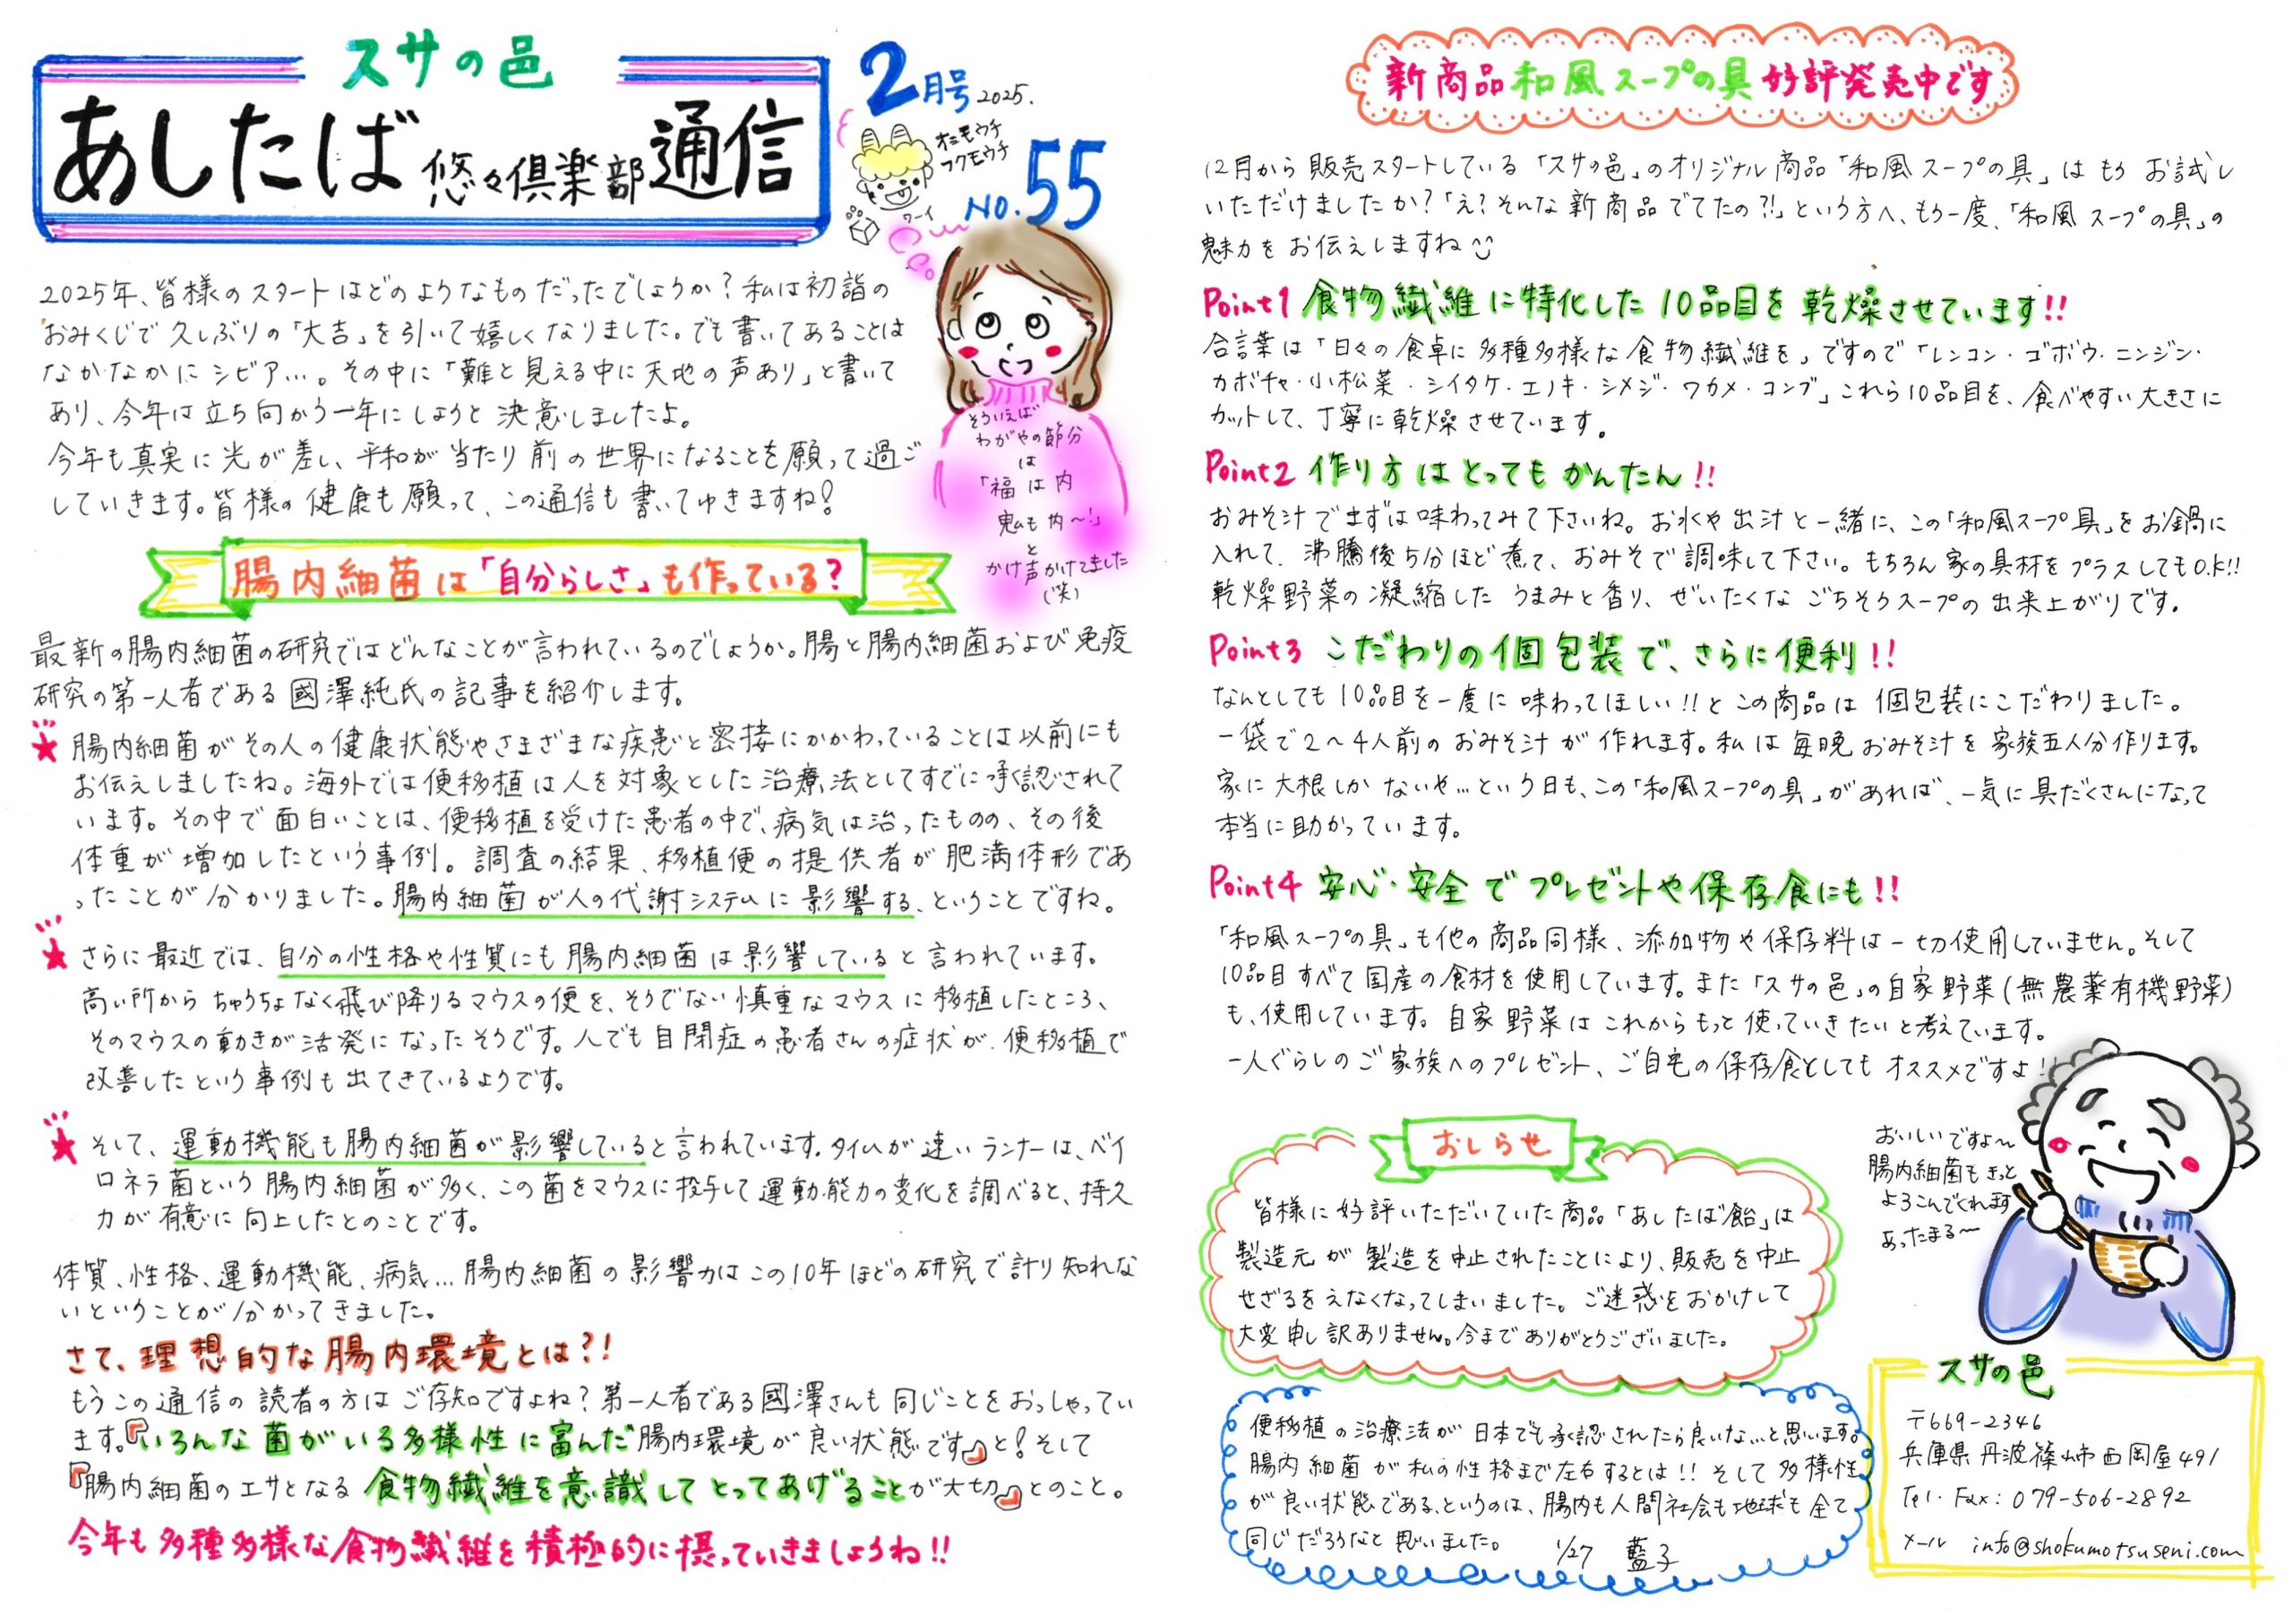 スサの邑
あしたば悠々倶楽部通信
2月号 2025.
オニモウチ
フクモウチ
ワーイ
NO.55
2025年、皆様のスタートはどのようなものだったでしょうか？私は初詣の
おみくじで久しぶりの「大吉」を引いて嬉しくなりました。でも書いてあることは
なかなかにシビア…。その中に「難と見える中に天地の声あり」と書いて
あり、今年は立ち向かう一年にしようと決意しましたよ。
今年も真実に光が差し、平和が当たり前の世界になることを願って過ご
していきます。皆様の健康も願って、この通信も書いてゆきますね！
そういえば
わがやの節分
は
「福は内
鬼も内〜！」
と
かけ声かけてました
（笑）
腸内細菌は「自分らしさ」も作っている？
最新の腸内細菌の研究ではどんなことが言われているのでしょうか。腸と腸内細菌および免疫
研究の第一人者である國澤純氏の記事を紹介します。
★腸内細菌がその人の健康状態やさまざまな疾患と密接にかかわっていることは以前にも
お伝えしましたね。海外では便移植は人を対象とした治療法としてすでに承認されて
います。その中で面白いことは、便移植を受けた患者の中で、病気は治ったものの、その後
体重が増加したという事例。調査の結果、移植便の提供者が肥満体形であ
ったことが分かりました。腸内細菌が人の代謝システムに影響する、ということですね。
★さらに最近では、自分の性格や性質にも腸内細菌は影響していると言われています。
高い所からちゅうちょなく飛び降りるマウスの便を、そうでない慎重なマウスに移植したところ、
そのマウスの動きが活発になったそうです。人でも自閉症の患者さんの症状が、便移植で
改善したという事例も出てきているようです。
★そして、運動機能も腸内細菌が影響していると言われています。タイムが速いランナーは、ベイ
ロネラ菌という腸内細菌が多く、この菌をマウスに投与して運動能力の変化を調べると、持久
力が有意に向上したとのことです。
体質、性格、運動機能、病気…腸内細菌の影響力はこの10年ほどの研究で計り知れな
いということが分かってきました。
さて、理想的な腸内環境とは？！
もうこの通信の読者の方はご存知ですよね？第一人者である國澤さんも同じことをおっしゃってい
ます。『いろんな菌がいる多様性に富んだ腸内環境が良い状態です』と！そして
『腸内細菌のエサとなる食物繊維を意識してとってあげることが大切』とのこと。
今年も多種多様な食物繊維を積極的に摂っていきましょうね！！
新商品和風スープの具好評発売中です
12月から販売スタートしている「スサの邑」のオリジナル商品「和風スープの具」はもうお試し
いただけましたか？「え？そんな新商品でてたの？！」という方へ、もう一度、「和風スープの具」の
魅力をお伝えしますね
Point1 食物繊維に特化した10品目を乾燥させています！！
合言葉は「日々の食卓に多種多様な食物繊維を」ですので「レンコン・ゴボウ・ニンジン・
カボチャ・小松菜・シイタケ・エノキ・シメジ・ワカメ・コンブ」これら10品目を、食べやすい大きさに
カットして、丁寧に乾燥させています。
Point2 作り方はとってもかんたん！！
おみそ汁でまずは味わってみて下さいね。お水や出汁と一緒に、この「和風スープ具」をお鍋に
入れて、沸騰後5分ほど煮て、おみそで調味して下さい。もちろん家の具材をプラスしてもO.K!!
乾燥野菜の凝縮したうまみと香り、ぜいたくなごちそうスープの出来上がりです。
Point3 こだわりの個包装で、さらに便利！！
なんとしても10品目を一度に味わってほしい！！とこの商品は個包装にこだわりました。
一袋で2〜4人前のおみそ汁が作れます。私は毎晩おみそ汁を家族五人分作ります。
家に大根しかないや…という日も、この「和風スープの具」があれば、一気に具だくさんになって
本当に助かっています。
Point4 安心・安全でプレゼントや保存食にも！！
「和風スープの具」も他の商品同様、添加物や保存料は一切使用していません。そして
10品目すべて国産の食材を使用しています。また「スサの邑」の自家野菜（無農薬有機野菜）
も、使用しています。自家野菜はこれからもっと使っていきたいと考えています。
一人ぐらしのご家族へのプレゼント、ご自宅の保存食としてもオススメですよ！！
おいしいですよ〜
腸内細菌もきっと
よろこんでくれます
あったまる〜
おしらせ
皆様に好評いただいていた商品「あしたば飴」は
製造元が製造を中止されたことにより、販売を中止
せざるをえなくなってしまいました。ご迷惑をおかけして
大変申し訳ありません。今までありがとうございました。
便移植の治療法が日本でも承認されたら良いな…と思います。
腸内細菌が私の性格まで左右するとは！！そして多様性
が良い状態である、というのは、腸内も人間社会も地球も全て
同じだろうなと思いました。 1/27 藍子
スサの邑
〒669-2346
兵庫県丹波篠山市西岡屋491
Tel・Fax：079-506-2892
メール info@shokumotsuseni.com